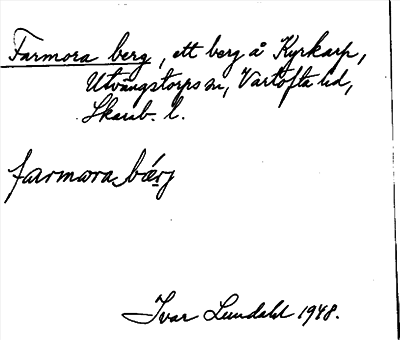 Farmora berg, ett berg å Kyrkarp,
Utvängstorps sn, Vartofta hd,
Skarab. l.
farmora bærj
Ivar Lundahl 1948.